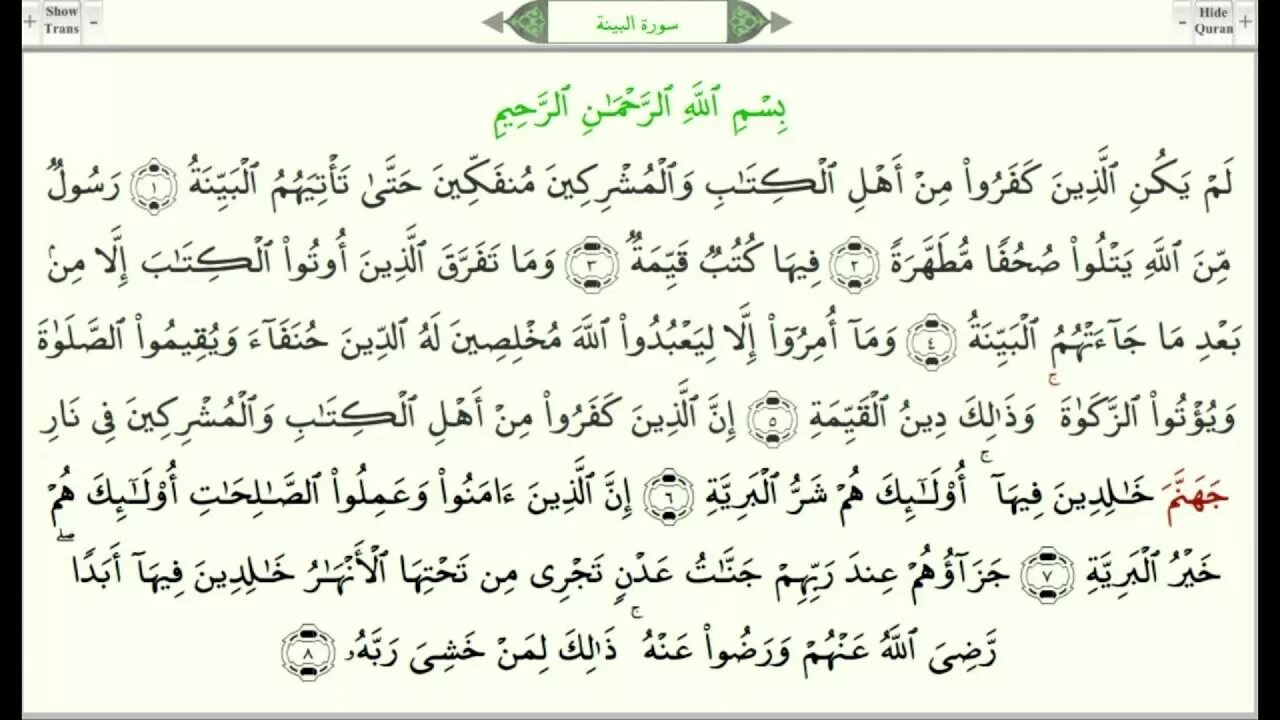 + Show Trans - سورة البينة - Hide Quran +
بِسْمِ ٱللَّهِ ٱلرَّحْمَـٰنِ ٱلرَّحِيمِ
لَمْ يَكُنِ ٱلَّذِينَ كَفَرُوا۟ مِنْ أَهْلِ ٱلْكِتَـٰبِ وَٱلْمُشْرِكِينَ مُنفَكِّينَ حَتَّىٰ تَأْتِيَهُمُ ٱلْبَيِّنَةُ ١ رَسُولٌ
مِّنَ ٱللَّهِ يَتْلُوا۟ صُحُفًا مُّطَهَّرَةً ٢ فِيهَا كُتُبٌ قَيِّمَةٌ ٣ وَمَا تَفَرَّقَ ٱلَّذِينَ أُوتُوا۟ ٱلْكِتَـٰبَ إِلَّا مِنۢ
بَعْدِ مَا جَآءَتْهُمُ ٱلْبَيِّنَةُ ٤ وَمَآ أُمِرُوٓا۟ إِلَّا لِيَعْبُدُوا۟ ٱللَّهَ مُخْلِصِينَ لَهُ ٱلدِّينَ حُنَفَآءَ وَيُقِيمُوا۟ ٱلصَّلَوٰةَ
وَيُؤْتُوا۟ ٱلزَّكَوٰةَ ۚ وَذَٰلِكَ دِينُ ٱلْقَيِّمَةِ ٥ إِنَّ ٱلَّذِينَ كَفَرُوا۟ مِنْ أَهْلِ ٱلْكِتَـٰبِ وَٱلْمُشْرِكِينَ فِى نَارِ
جَهَنَّمَ خَـٰلِدِينَ فِيهَآ ۚ أُو۟لَـٰٓئِكَ هُمْ شَرُّ ٱلْبَرِيَّةِ ٦ إِنَّ ٱلَّذِينَ ءَامَنُوا۟ وَعَمِلُوا۟ ٱلصَّـٰلِحَـٰتِ أُو۟لَـٰٓئِكَ هُمْ
خَيْرُ ٱلْبَرِيَّةِ ٧ جَزَآؤُهُمْ عِندَ رَبِّهِمْ جَنَّـٰتُ عَدْنٍ تَجْرِى مِن تَحْتِهَا ٱلْأَنْهَـٰرُ خَـٰلِدِينَ فِيهَآ أَبَدًا ۖ
رَّضِىَ ٱللَّهُ عَنْهُمْ وَرَضُوا۟ عَنْهُ ۚ ذَٰلِكَ لِمَنْ خَشِىَ رَبَّهُۥ ٨